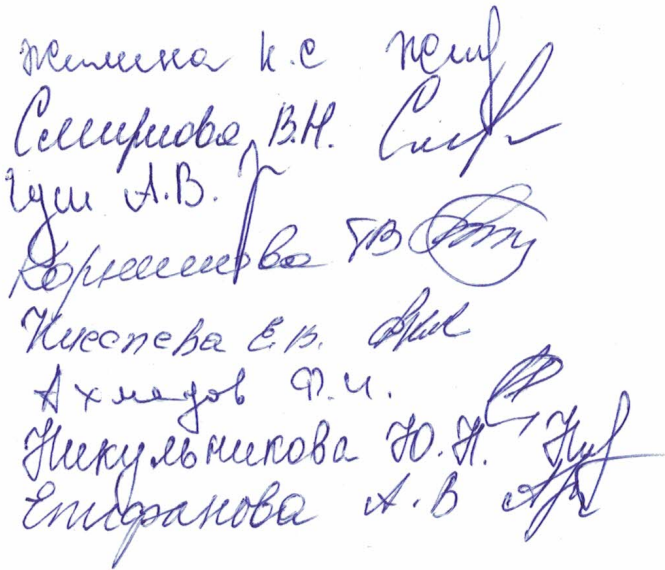 Жилина К.С
Смирнова В.Н.
Гуш А.В.
Корнилова ТВ
Киселева Е.В.
Ахмедов Ф.И.
Никульникова Ю.Н.
Епифанова А.В